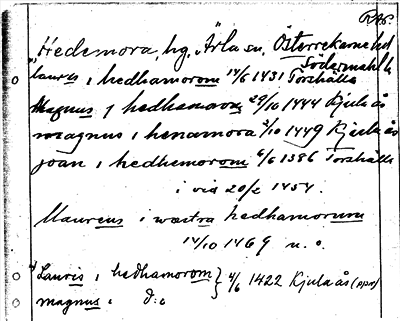 RAP.
"Hedemora, hg, "Ärla sn, Österrekarne hd
Södermanl. l.
laurus i hedhamorom 14/6 1431 Torshälla
Magnus i hedhamora 29/10 1444 Kjula ås
magnus i henamora 2/10 1449 Kjula ås
joan i hedhemorom 6/6 1386 Torshälla
i via 20/2 1454.
Maureus i wæstra hedhamorum
14/10 1469 u. o.
Lauris i hedhamorom } 4/6 1422 Kjula ås (ppr)
magnus i d:o